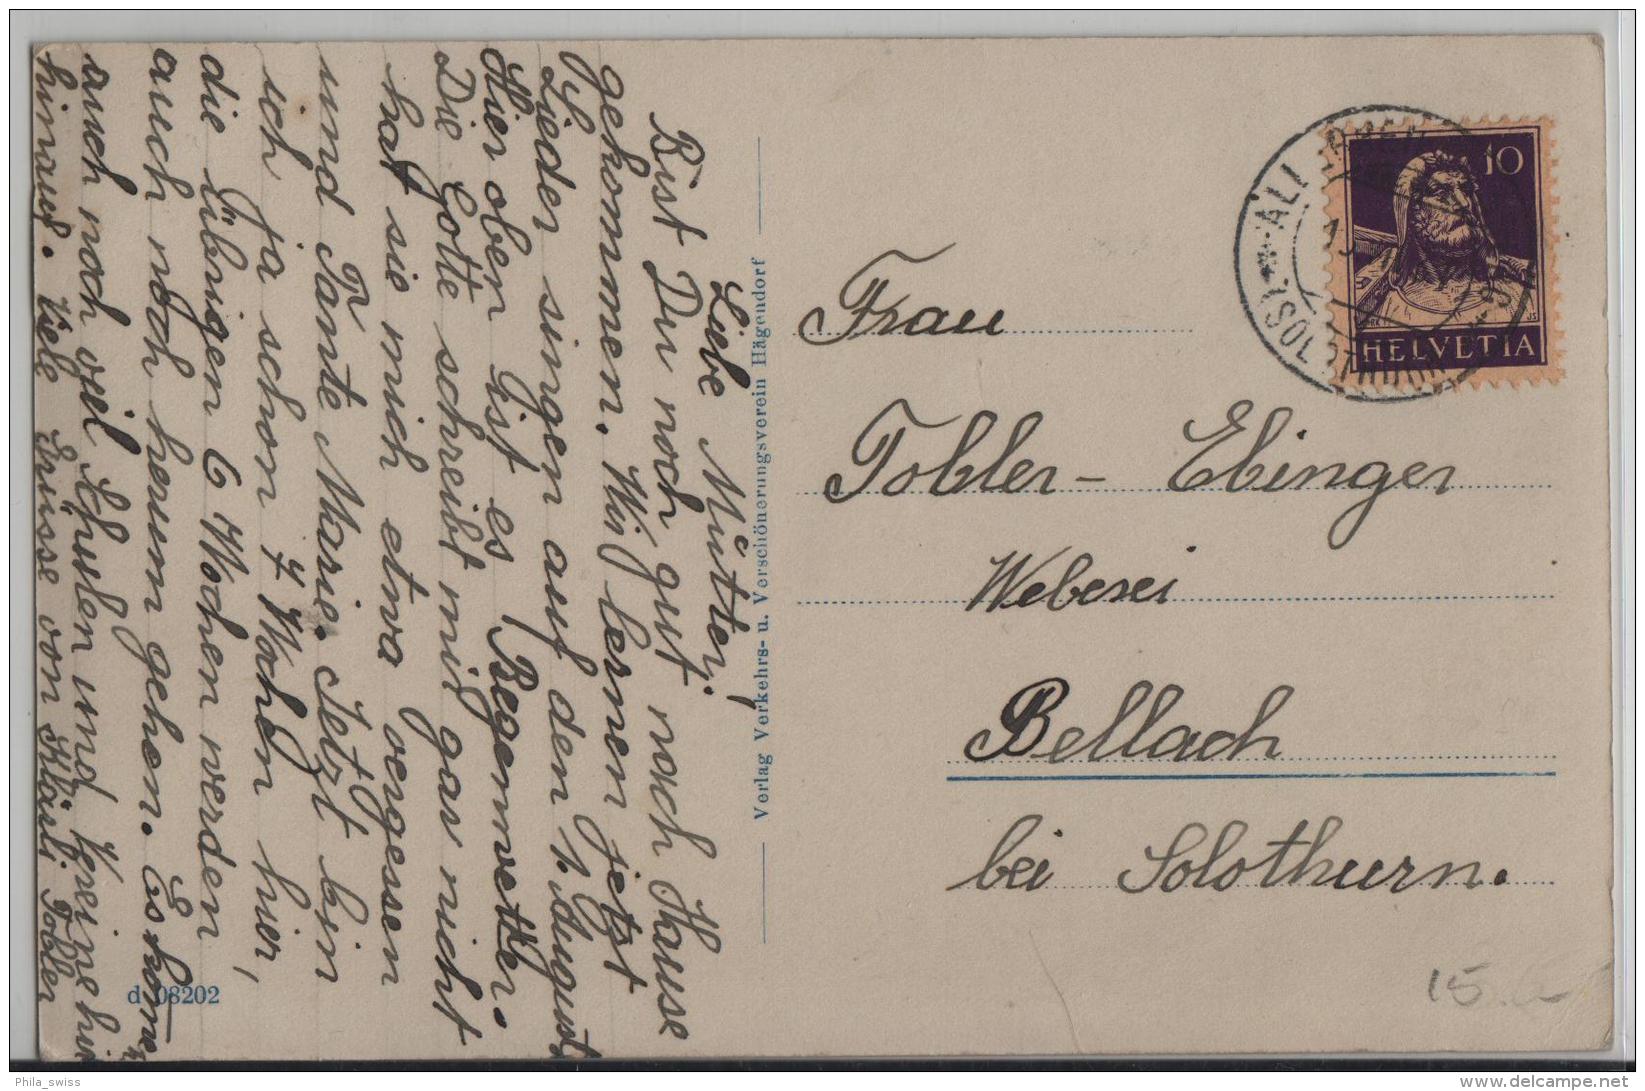 Liebe Mutter,
Bist Du noch gut nach Hause
gekommen. Wir lernen jetzt
Lieder singen auf den 1. August
Hier oben ist es Regenwetter.
Die Gotte schreibt mir gar nicht
hat sie mich etwa vergessen
und Tante Marie. Jetzt bin
ich ja schon 7 Wochen hier,
die übrigen 6 Wochen werden
auch noch herum gehen. Es
auch noch viel Schulen und Vereine
hinauf. Viele Grüsse von Klärli Tobler
d 08202
Verlag Verkehrs- u. Verschönerungsverein Hägendorf
10
HELVETIA
(SOLOTHURN)
Frau
Tobler - Ebinger
Weberei
Bellach
bei Solothurn.
15.
Phila_swiss
delcampe.net